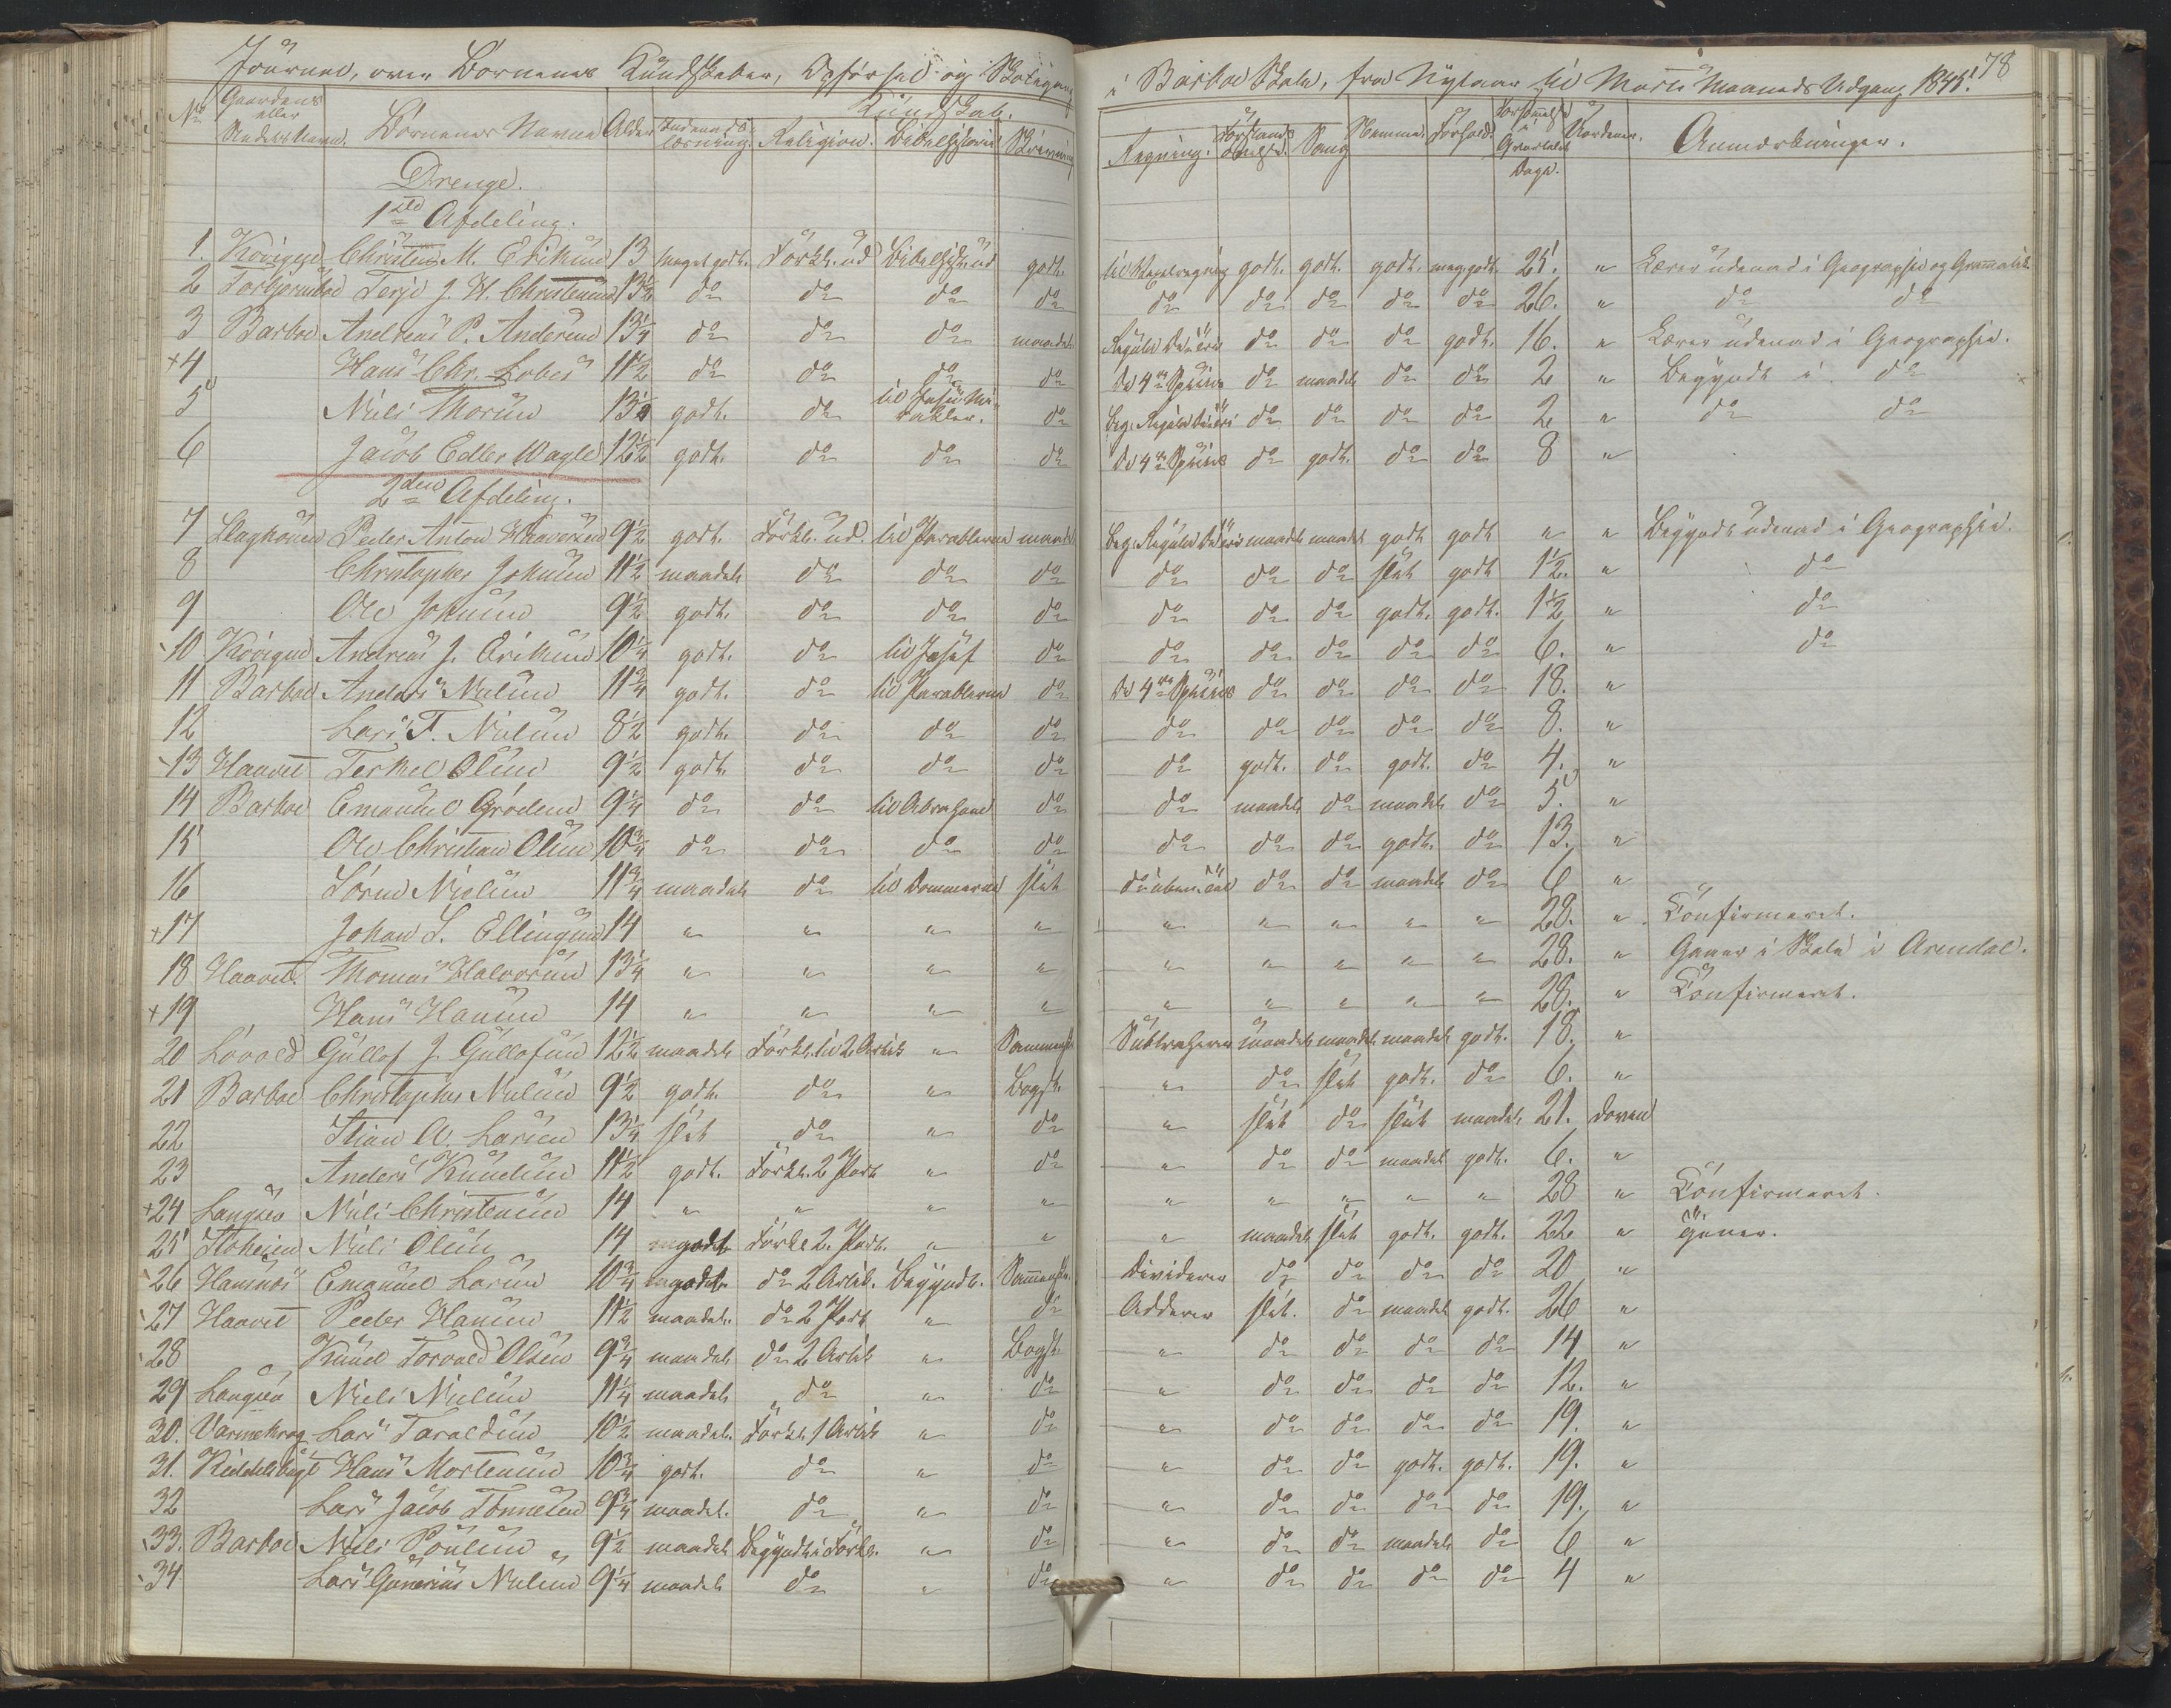 Journal, over Børnenes Kundskaber, Opførsel og Skolegang i Barboe Skole, fra Nytaar til Marts Maaneds Udgang 1845. 78
No Gaardens eller Stedets Navn. Børnenes Navne Alder Indenads-læsning. Kundskab. Religion. Bibelhistorie Skrivning Regning. Forstands øvelse. Sang Stemme. Forhold. Forsømmelse i Qvartalet Dage. Anmærkninger.
Drenge.
1ste Afdeling.
1. Christen M. Eriksen 13 meget godt. Forkl. ud Bibelhist. ud godt. godt. godt. godt. meg. godt. 25. " Lærer udenad i Geographie og Grammatik.
2 Torbjørnsboe Terje J. H. Christensen 13½ do do do do do do do do do 26. " do do
3 Barboe Andreas P. Andersen 13¼ do do do maadel. Regula Detri do do do godt. 16. " Lærer udenad i Geographie.
+4 Hans Chr. Lobes 11½ do do do do De 4re Species do maadel. do do 2 " Begyndt i do
5 Niels Thorsen 13¼ godt. do til Jesu Mirakler. do beg. Regula Detri do do do do 2 " do do
6 Jacob Edler Wagle 12½ godt. do do do De 4re Species do godt. do do 8 "
2den Afdeling.
7 Peder Anton Haaversen 9½ godt. Forkl. ud. til Parablerne maadel. beg. Regula Detri maadel. maadel. godt godt " " Begyndt udenad i Geographie.
8 Christopher Johnsen 11½ maadel. do do do do do do slet godt 1½. " do
9 Ole Johnsen 9½ godt. do do do do do do godt. godt. 1½ " do
10 Andreas J. Eriksen 10¼ godt. do til Josef do do do do do do 6. " do
11 Barboe Anders Nielsen 11¾ godt. do til Parablerne do De 4re Species do do do do 18. "
12 Lars T. Nielsen 8½ godt. do do do do do do do do 8. "
13 Haavet Terkel Olsen 9½ godt. do do do do godt. do godt. do 4. "
14 Barboe Emanuel Grødem 9¼ do do til Abraham do do maadel. do maadel. do 5. "
15 Ole Christian Olsen 10¾ do do do do do do do godt. do 13. "
16 Søren Nielsen 11¾ maadel. do til Dommerne slet do uben. Tal do do maadel. do 6 "
+17 Johan S. Ellingsen 14 " " " " " " " " " 28. " Confirmeret.
18 Haavet. Thomas Halvorsen 13¼ " " " " " " " " " 28. " Gaaer i Skole i Arendal.
+19 Hans Hansen 14 " " " " " " " " " 28. " Confirmeret.
20 Løvold Gullof J. Gullofsen 12½ maadel. Forkl. til 2 Artik " Sammens. Subtraherer maadel. maadel. maadel. godt. 18. "
21 Barboe Christopher Nielsen 9½ godt. do " Bogst. " do slet godt. do 6. "
22 Stian A. Larsen 13¼ slet do " do " slet do slet maadel. 21. doven
23 Anders Knudsen 11½ godt. Forkl. 2 Part " do " do do maadel. godt. 6. "
+24 Langsæ Niels Christensen 14 " " " " " " " " " 28 " Confirmeret.
25 Stoheien Niels Olsen 14 godt Forkl. 2. Part. " " " maadel. slet godt. godt. 22 "
26 Emanuel Larsen 10¾ godt. do 2 Artik. Begyndt. Sammens. Dividerer do do do do 20 "
27 Haavet Peder Hansen 11½ maadel. do 2 Part " do Adderer slet. do maadel. godt. 26 "
28 Knud Torvald Olsen 9¾ maadel. do 2 Artik " Bogst. " do do do do 14 "
29 Langsæ Niels Nielsen 11¼ maadel. do " do " do do do do 12. "
30. Varmekrog Lars Taraldsen 10½ maadel. Forkl. 1 Artik " do " do do do do 19. "
31. Kiddelsbugt Hans Mortensen 10¾ godt. do " do " do do godt. godt. 19. "
32 Lars Jacob Tønnesen 9¾ maadel. do " do " do do do do 19. "
33. Barboe Niels Poulsen 9½ maadel. Begyndt i Forkl. " do " do do maadel. do 6 "
34 Lars Gunerius Nielsen 9¼ maadel. do " do " do do do do 4 "